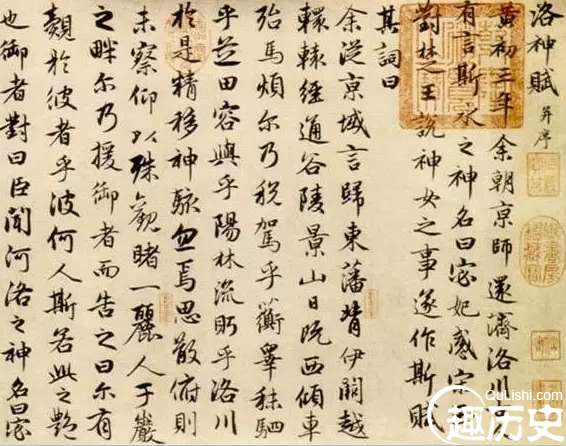 洛神賦 并序
黃初三年余朝京師還濟洛川
有言斯水之神名曰宓妃感宋
對楚王說神女之事遂作斯賦
其詞曰
余從京域言歸東藩背伊闕越
轘轅經通谷陵景山日既西傾車
殆馬煩尔乃稅駕乎蘅皋秣駟
乎芝田容與乎陽林流眄乎洛川
於是精移神駭忽焉思散俯則
未察仰以殊觀睹一麗人于巖
之畔尔乃援御者而告之曰尔有
覿於彼者乎彼何人斯若此之艷
也御者對曰臣聞河洛之神名曰宓
QuLishi.com
趣历史